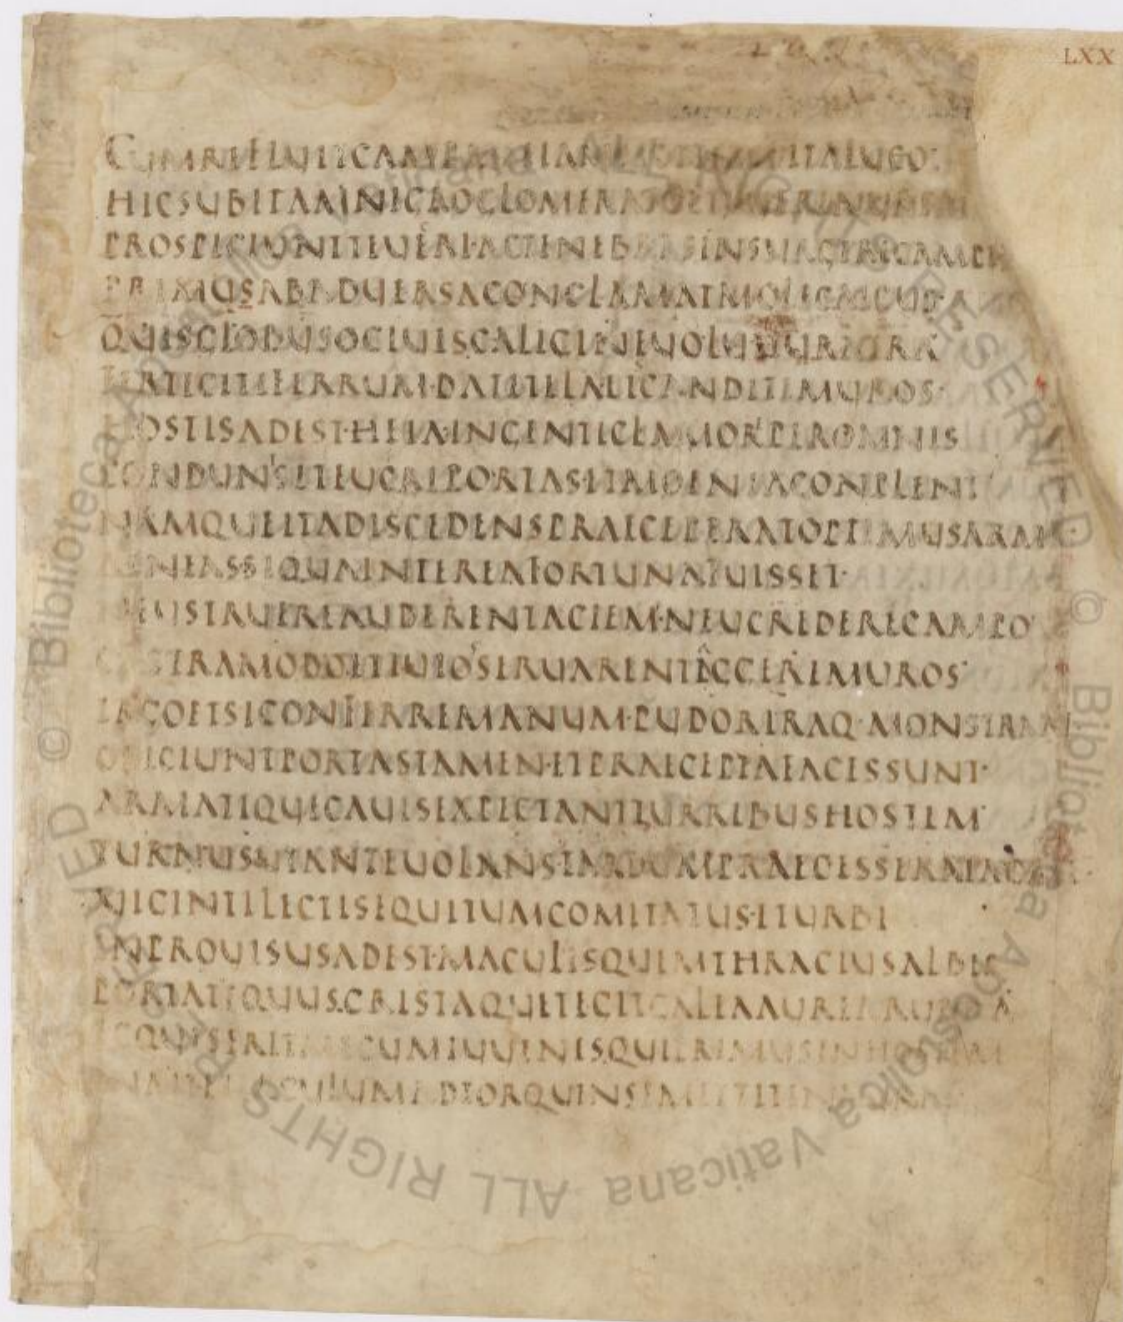 CUMREFLUITCAMPISETIAMSECONDIDITALUEO·
HICSUBITAMNIGROGLOMERARIPULUERENUBEM
PROSPICIUNTTEUCRIACTENEBRASINSURGERECAMPIS
PRIMUSABADUERSACONCLAMATMOLECAICUS
QUISGLOBUSOCIUISCALIGINEUOLUITURATRA
FERTECITIFERRUM·DATETELAETSCANDITEMUROS·
HOSTISADEST·HEIA·INGENTICLAMOREPEROMNIS
CONDUNTSETEUCRIPORTAS·ETMOENIACONPLENT
NAMQUEITADISCEDENSPRAECEPERATOPTIMUSARMIS
AENEASSIQUAINTEREAFORTUNAFUISSET·
NEUSTRUEREAUDERENTACIEM·NEUCREDERECAMPO·
CASTRAMODOETTUTOSSERUARENTAGGEREMUROS·
ERGOETSICONFERREMANUM·PUDORIRAQ·MONSTRAT
OBICIUNTPORTASTAMEN·ETPRAECEPTAFACESSUNT·
ARMATIQUECAUISEXPECTANTTURRIBUSHOSTEM·
TURNUSUTANTEUOLANSTARDUMPRAECESSERATAGMEN
UIGINTILECTISEQUITUMCOMITATUS·ETURBI
INPROUISUSADEST·MACULISQUEMTHRACIUSALBIS
PORTATEQUUS·CRISTAQUETEGITGALEAAUREARUBRA
ECQUISERITMECUMIUUENESQUIPRIMUSINHOSTEM
ENAITETIACULUMADTORQUENSEMITTITINAURAS
LXX